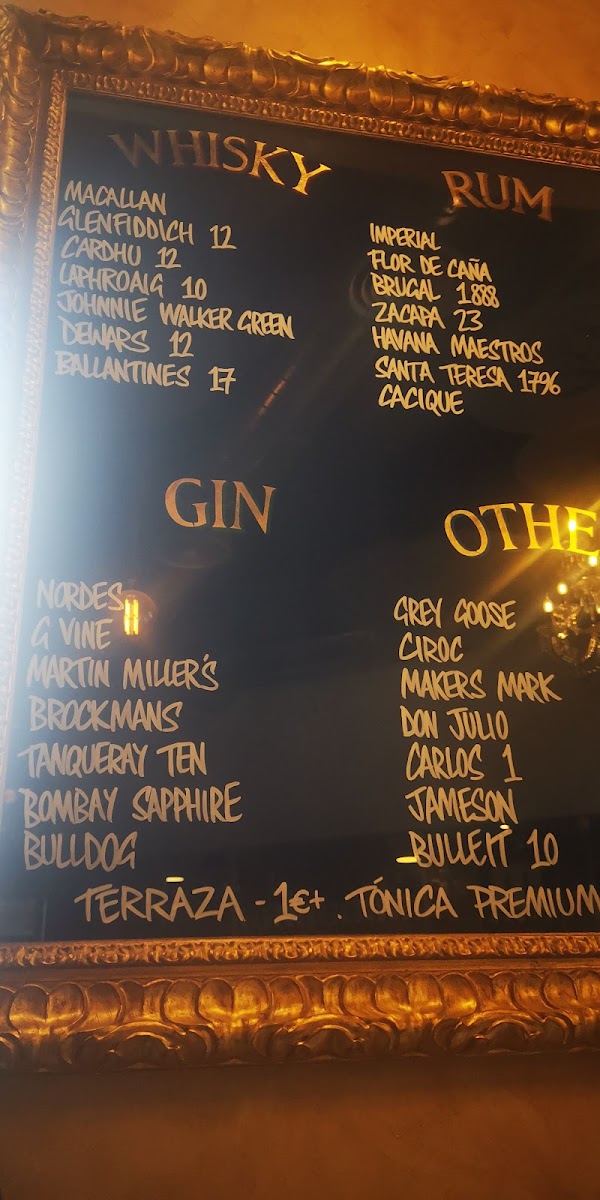 WHISKY
MACALLAN
GLENFIDDICH 12
CARDHU 12
LAPHROAIG 10
JOHNNIE WALKER GREEN
DEWARS 12
BALLANTINES 17
RUM
IMPERIAL
FLOR DE CAÑA
BRUGAL 1888
ZACAPA 23
HAVANA MAESTROS
SANTA TERESA 1796
CACIQUE
GIN
NORDES
G VINE
MARTIN MILLER'S
BROCKMANS
TANQUERAY TEN
BOMBAY SAPPHIRE
BULLDOG
OTHE
GREY GOOSE
CIROC
MAKERS MARK
DON JULIO
CARLOS 1
JAMESON
BULLEIT 10
TERRAZA - 1€+ . TÓNICA PREMIUM